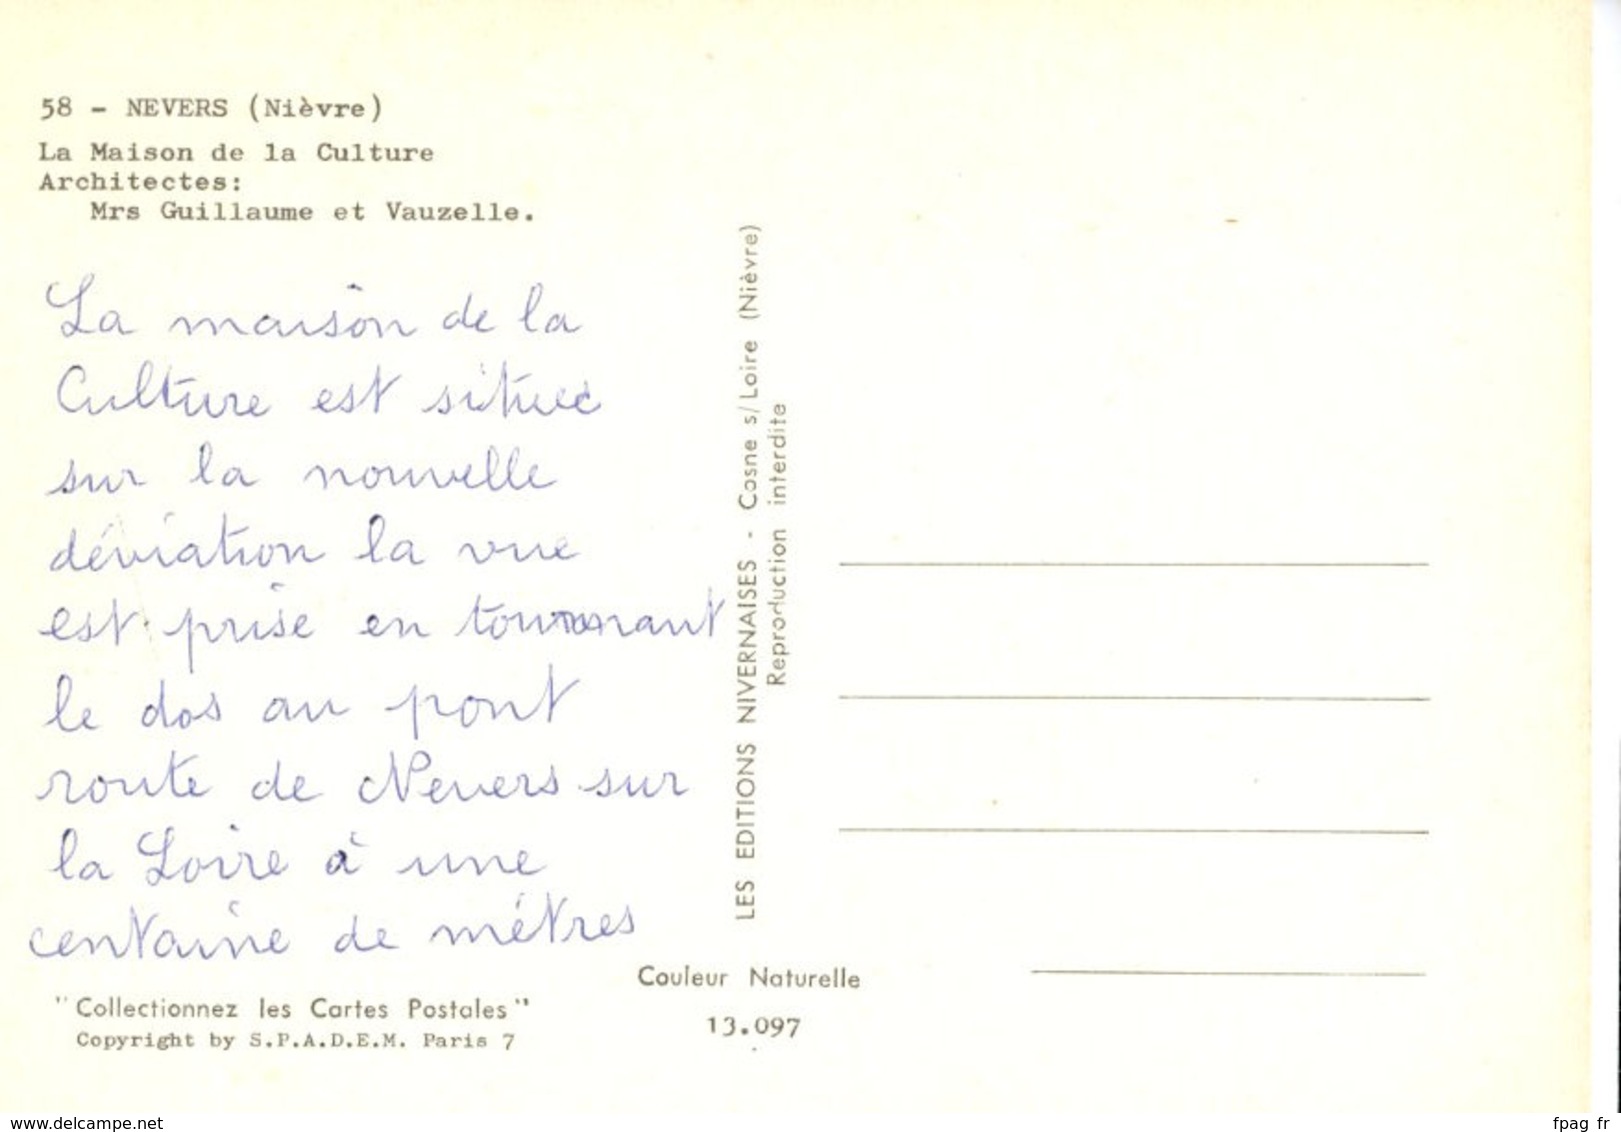 58 - NEVERS (Nièvre)
La Maison de la Culture
Architectes:
Mrs Guillaume et Vauzelle.
La maison de la
Culture est située
sur la nouvelle
déviation la vue
est prise en tournant
le dos au pont
route de Nevers sur
la Loire à une
centaine de métres
"Collectionnez les Cartes Postales"
Copyright by S.P.A.D.E.M. Paris 7
LES EDITIONS NIVERNAISES - Cosne s/Loire (Nièvre)
Reproduction interdite
Couleur Naturelle
13.097
www.delcampe.net
fpag_fr